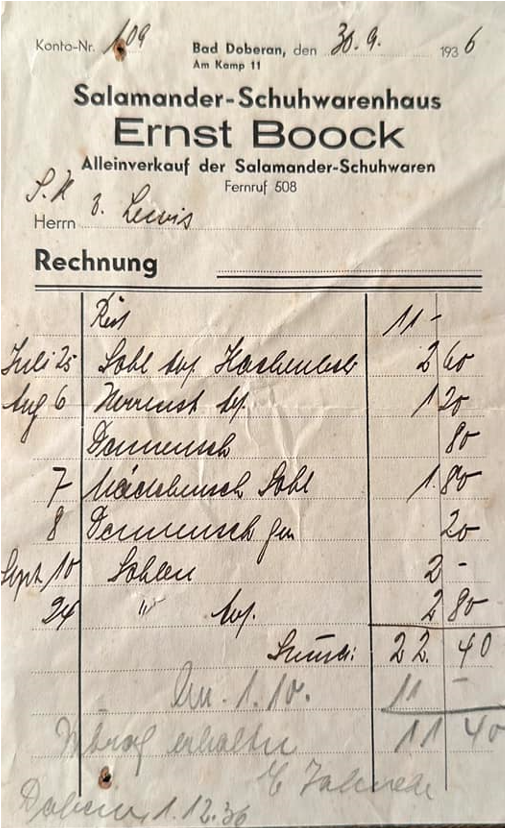 Konto-Nr. 109 Bad Doberan, den 30.9. 1936
Am Kamp 11
Salamander-Schuhwarenhaus
Ernst Boock
Alleinverkauf der Salamander-Schuhwaren
Fernruf 508
Herrn v. Lewis
Rechnung
Rest 11 -
Juli 25 Sohl 2 60
Aug 6 1 20
Damensch 80
7 Mädchensch Sohl 1 80
8 Damensch 20
Sept 10 Sohlen 2 -
24 " 2 80
Summe: 22. 40
1.10. 11 -
erhalten 11 40
1.12.36